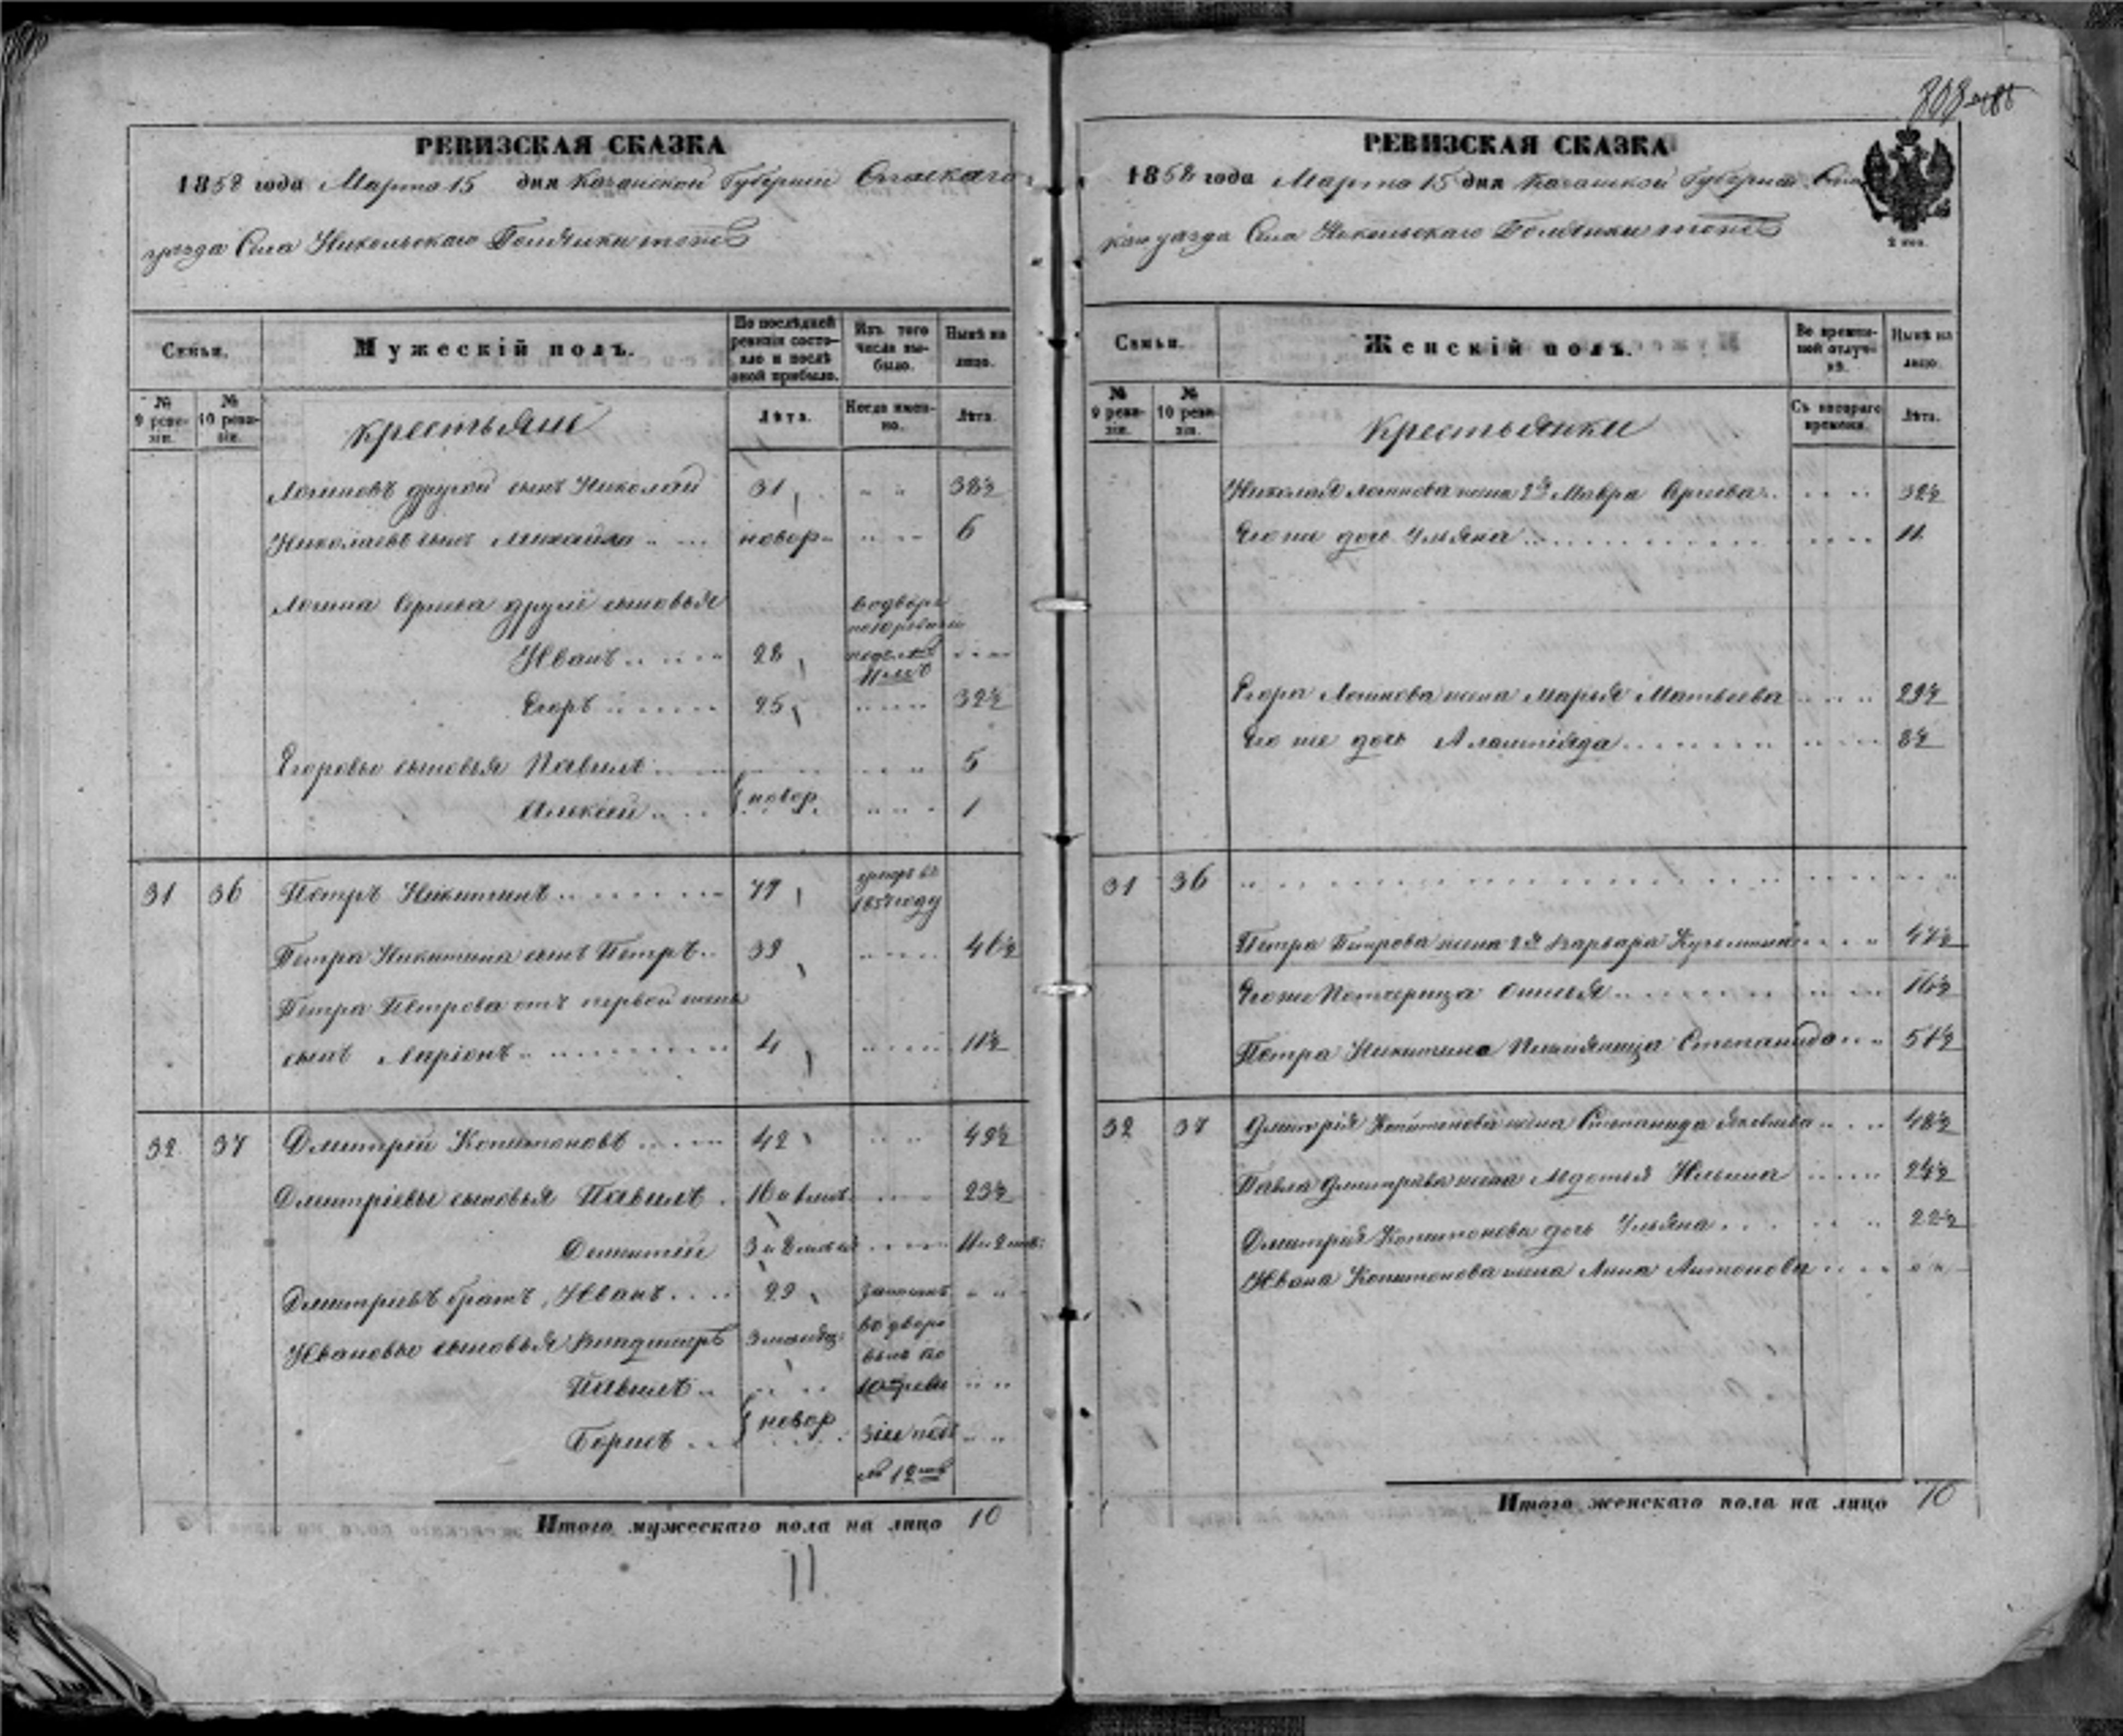 РЕВИЗСКАЯ СКАЗКА
1858 года Марта 15 дня Казанской Губернии Спаскаго
уезда Села Никольскаго Болдянки тожъ
Семьи.
Мужескій полъ.
По послѣдней ревизіи состояло и послѣ оной прибыло.
Изъ того числа выбыло.
Нынѣ на лицо.
№ 9 ревизіи.
№ 10 ревизіи.
крестьянъ
Лѣта.
Когда именно.
Лѣта.
Логиновъ другой сынъ Николай 31 38½
Николаевъ сынъ Михайло новор 6
Логина Сергеева другіе сыновья
Иванъ 28
Егоръ 25 32½
Егоровы сыновья Павилъ 5
Алексей новор 1
31 36 Петръ Никитинъ 77
Петра Никитина сынъ Петръ 39 46½
Петра Петрова отъ первой жены
сынъ Ларіонъ 4 11½
32 37 Дмитрій Копитоновъ 42 49½
Дмитріевы сыновья Павилъ 16 23½
Дементій
Дмитріевъ братъ Иванъ 29
Ивановы сыновья Владимиръ
Павилъ
Борисъ новор
Итого мужескаго пола на лицо 10
11
РЕВИЗСКАЯ СКАЗКА
1858 года Марта 15 дня Казанской Губерніи
уезда Села Никольскаго Болдянки тожъ
2 коп.
Семьи.
Женскій полъ.
Во временной отлучкѣ.
Нынѣ на лицо.
№ 9 ревизіи.
№ 10 ревизіи.
Крестьянки
Съ котораго времени.
Лѣта.
Николая Логинова жена 2я Мавра Сергеева 32½
Его же дочь Ульяна 11
Егора Логинова жена Марья Матвеева 29½
Его же дочь 8½
31 36
Петра Петрова жена 2я Варвара 47½
Его же Потчерица 16½
Петра Никитина Степанида 51½
32 37 Дмитрія Копитонова жена Степанида Яковлева 48½
Павла Дмитріева жена Ильина 24½
Дмитрія Копитонова дочь Ульяна 22½
Ивана Копитонова жена Анна Антонова
Итого женскаго пола на лицо 10